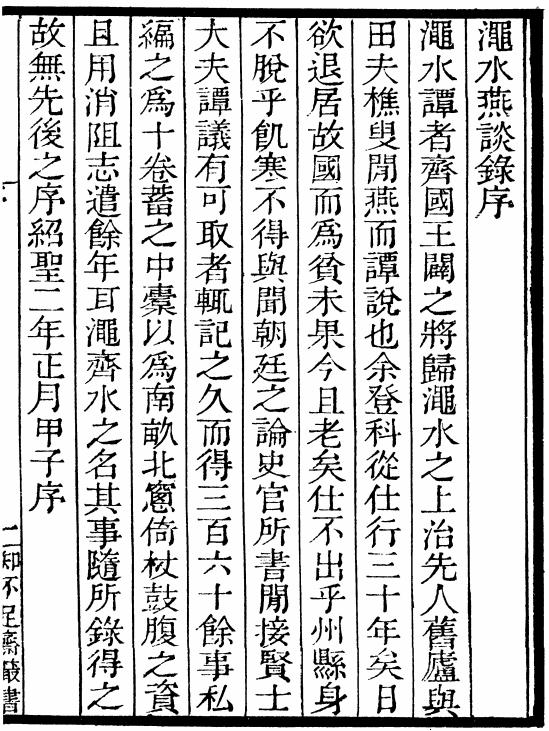 澠水燕談錄序
澠水譚者齊國王闢之將歸澠水之上治先人舊廬與
田夫樵叟閒燕而譚說也余登科從仕行三十年矣日
欲退居故國而爲貧未果今且老矣仕不出乎州縣身
不脫乎飢寒不得與聞朝廷之論史官所書閒接賢士
大夫譚議有可取者輒記之久而得三百六十餘事私
編之爲十卷蓄之中櫜以爲南畝北窻倚杖鼓腹之資
且用消阻志遣餘年耳澠齊水之名其事隨所錄得之
故無先後之序紹聖二年正月甲子序
知不足齋叢書